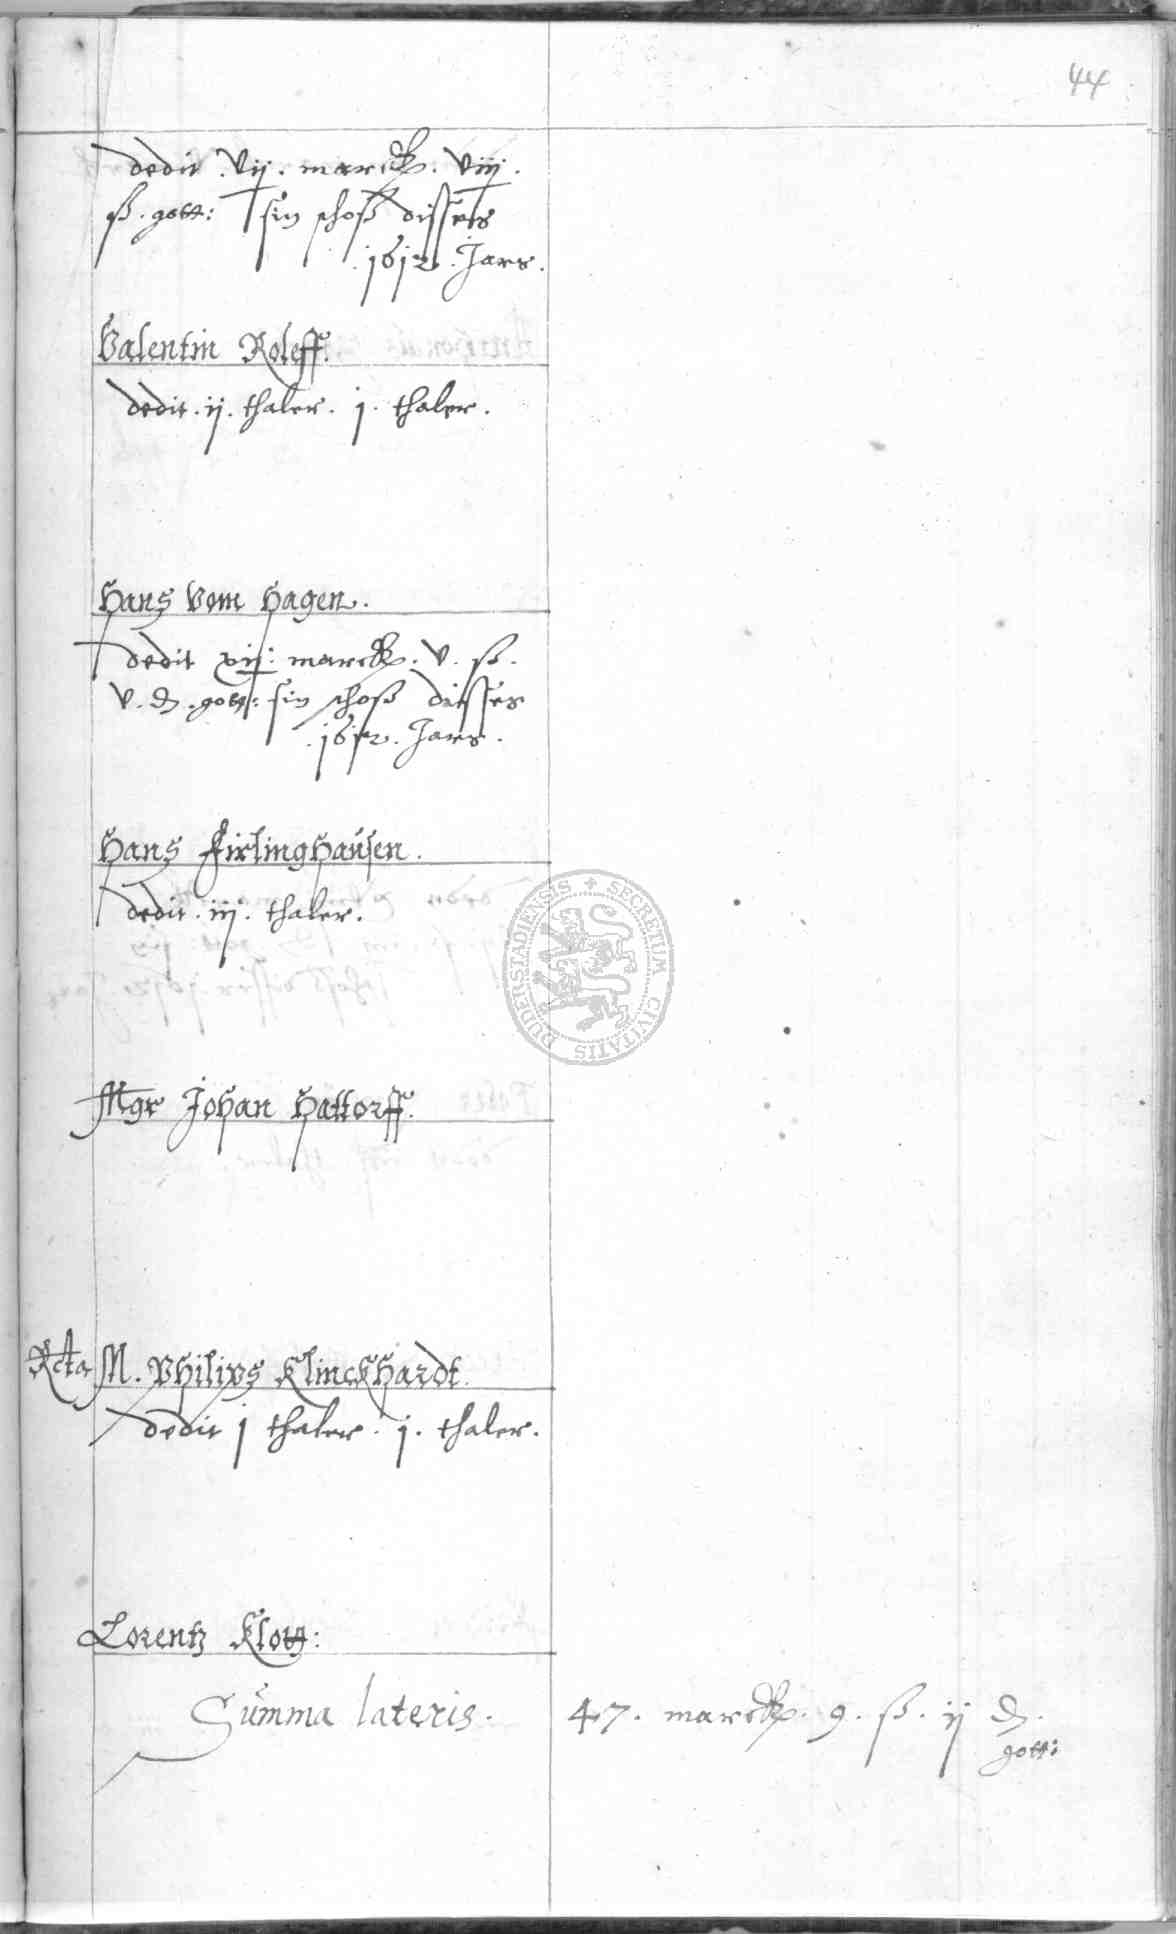 44
dedit . vij . marck . viij .
ß . gott: sin schoß disses
. 1612 . Jars .
Valentin Roleff.
dedit . ij . thaler . j . thaler .
Hans Vom Hagen .
dedit xij . marck . v . ß .
v . d . gott: sin schoß disses
. 1612 . Jars .
Hans Firlinghausen .
dedit . iij . thaler .
SECRETUM CIVITATIS DUDERSTADIENSIS
Mgr Johan Hattorff.
Rcta M . Philips Klinckhardt .
dedit j thaler . j . thaler .
Lorentz Klott :
Summa lateris . 47 . marck . 9 . ß . ij d .
gott: